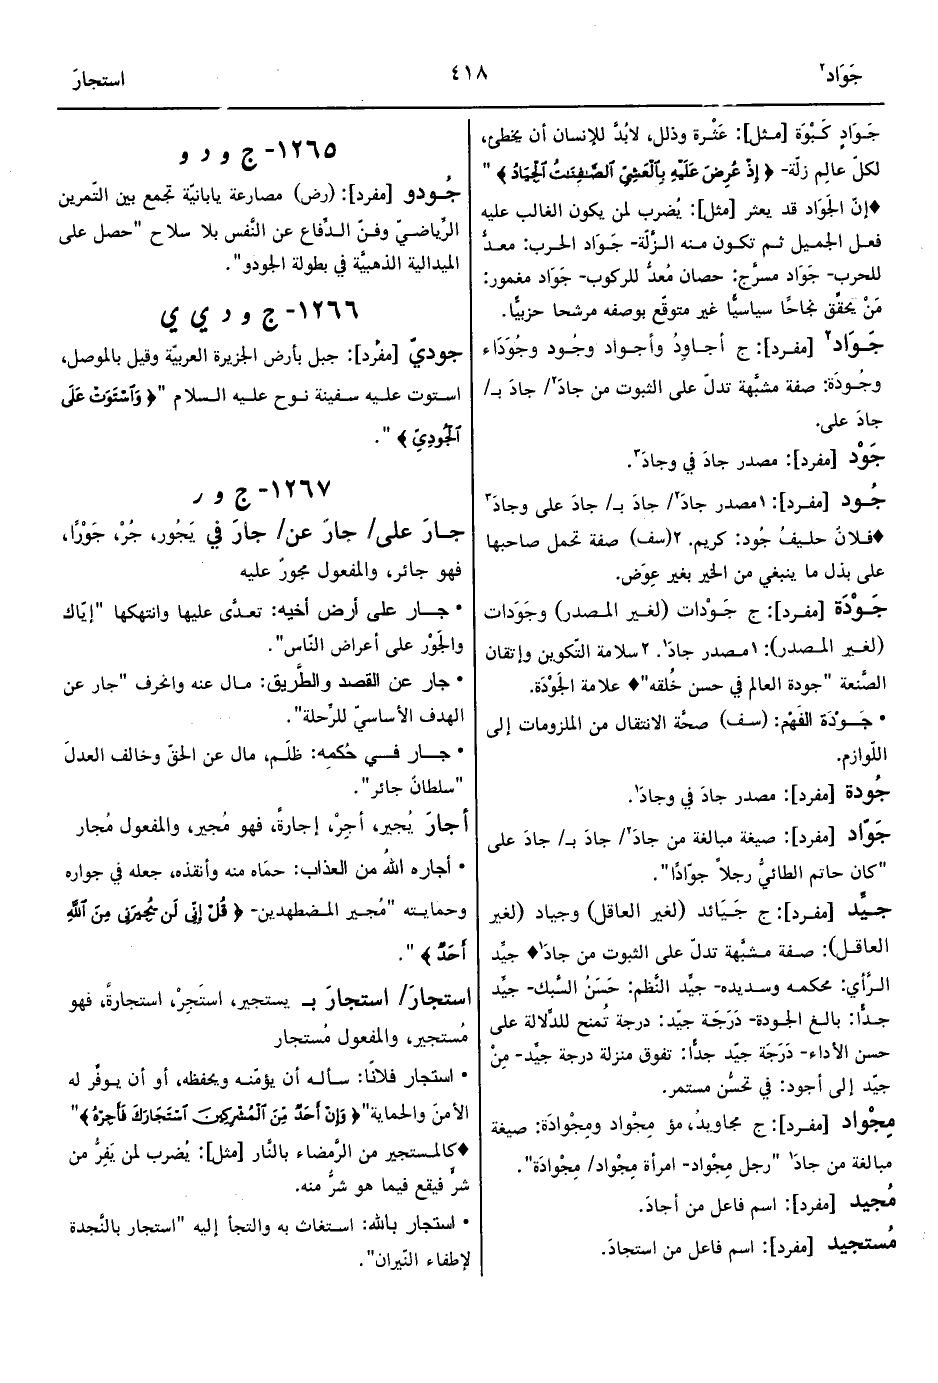 جَوَاد٢
٤١٨
استجارَ
جَوَادٍ كَبْوَة [مثل]: عَثْرة وذلل، لابُدَّ للإنسان أن يخطئ،
لكلّ عالِم زلّة- ﴿ إِذْ عُرِضَ عَلَيْهِ بِالْعَشِيِّ الصَّافِنَاتُ الْجِيَادُ ﴾ "
♦إنّ الجَوَاد قد يعثر [مثل]: يُضرب لمن يكون الغالب عليه
فعل الجميل ثم تكون منه الزَّلّة- جَوَاد الحرب: معدٌّ
للحرب- جَوَاد مسرَّج: حصان مُعدٌّ للركوب- جَوَاد مغمور:
مَنْ يحقِّق نجاحًا سياسيًّا غير متوقَّع بوصفه مرشحا حزبيًّا.
جَـوَاد٢ [مفـرد]: ج أجـاوِدُ وأجـواد وجُـود وجُوَدَاء
وجُـودَة: صفة مشبَّهة تدلّ على الثبوت من جادَ٢/ جادَ بـ/
جادَ على.
جَوْد [مفرد]: مصدر جادَ في وجادَ٣.
جُـود [مفـرد]: ١مصدر جادَ٢/ جادَ بـ/ جادَ على وجادَ٣
♦فـلانٌ حليـفُ جُود: كريم. ٢(سف) صفة تحمل صاحبها
على بذل ما ينبغي من الخير بغير عِوَض.
جَـوْدَة [مفرد]: ج جَـوْدات (لغير المصدر) وجَوَدات
(لغـير المصدر): ١مصدر جادَ١. ٢سلامة التّكوين وإتقان
الصَّنعة "جودة العالم في حسن خُلقه"♦ علامة الجَوْدَة.
• جَـوْدَة الفَهْم: (سف) صحَّة الانتقال من الملزومات إلى
اللّوازم.
جُودة [مفرد]: مصدر جادَ في وجادَ١.
جَوّاد [مفرد]: صيغة مبالغة من جادَ٢/ جادَ بـ/ جادَ على
"كان حاتم الطائيُّ رجلاً جوّادًا".
جـيِّد [مفرد]: ج جَـيَائد (لغير العاقل) وجياد (لغير
العاقـل): صفـة مـشبَّهة تدلّ على الثبوت من جادَ١♦ جيِّد
الرَّأي: محكمه وسديده- جيِّد النَّظم: حَسَنُ السَّبك- جيِّد
جـدًّا: بالـغ الجـودة- دَرَجَـة جيِّد: درجة تُمنح للدِّلالة على
حسن الأداء- دَرَجَة جيِّد جدًّا: تفوق منزلة درجة جيِّد- مِنْ
جيّد إلى أجود: في تحسُّن مستمر.
مِجْواد [مفـرد]: ج مجَاويدُ، مؤ مِجْواد ومِجْوادَة: صيغة
مبالغة من جادَ١ "رجل مِجْواد- امرأة مِجْواد/ مِجْوادَة".
مُجيد [مفرد]: اسم فاعل من أجادَ.
مُستجيد [مفرد]: اسم فاعل من استجادَ.
١٢٦٥- ج و د و
جُـودو [مفرد]: (رض) مصارعة يابانيّة تجمع بين التّمرين
الرِّياضيّ وفـنّ الـدِّفاع عن النَّفس بلا سلاح "حصل على
الميدالية الذهبيَّة في بطولة الجودو".
١٢٦٦- ج و د ي ي
جوديّ [مفرد]: جبل بأرض الجزيرة العربيّة وقيل بالموصل،
استوت عليه سفينة نوح عليه السلام "﴿ وَاسْتَوَتْ عَلَى
الْجُودِيِّ ﴾ ".
١٢٦٧- ج و ر
جـارَ على/ جارَ عن/ جارَ في يَجُور، جُرْ، جَوْرًا،
فهو جائر، والمفعول مجورٌ عليه
• جـار على أرض أخيه: تعدَّى عليها وانتهكها "إيّاك
والجَوْر على أعراض النّاس".
• جار عن القصد والطَّريق: مـال عنه وانحرف "جار عن
الهدف الأساسيّ للرِّحلة".
• جـار فـي حُكمِه: ظلَـم، مال عن الحقّ وخالف العدلَ
"سلطانٌ جائر".
أجارَ يُجير، أجِرْ، إجارةً، فهو مُجير، والمفعول مُجار
• أجاره اللهُ من العذاب: حمَاه منه وأنقذه، جعله في جواره
وحمايـته "مُجير المـضطهدين- ﴿ قُلْ إِنِّي لَن يُجِيرَنِي مِنَ اللَّهِ
أَحَدٌ ﴾ ".
استجارَ/ استجارَ بـ يستجير، استَجِرْ، استجارةً، فهو
مُستجير، والمفعول مُستجار
• استجار فلانًا: سـأله أن يؤمّنـه ويحفظه، أو أن يوفّر له
الأمنَ والحماية"﴿ وَإِنْ أَحَدٌ مِّنَ الْمُشْرِكِينَ اسْتَجَارَكَ فَأَجِرْهُ ﴾"
♦كالمستجير من الرَّمضاء بالنَّار [مثل]: يُضرب لمن يَفِرُّ من
شرٍّ فيقع فيما هو شرٌّ منه.
• استجار بـالله: استغاث به والتجأ إليه "استجار بالنَّجدة
لإطفاء النّيران".